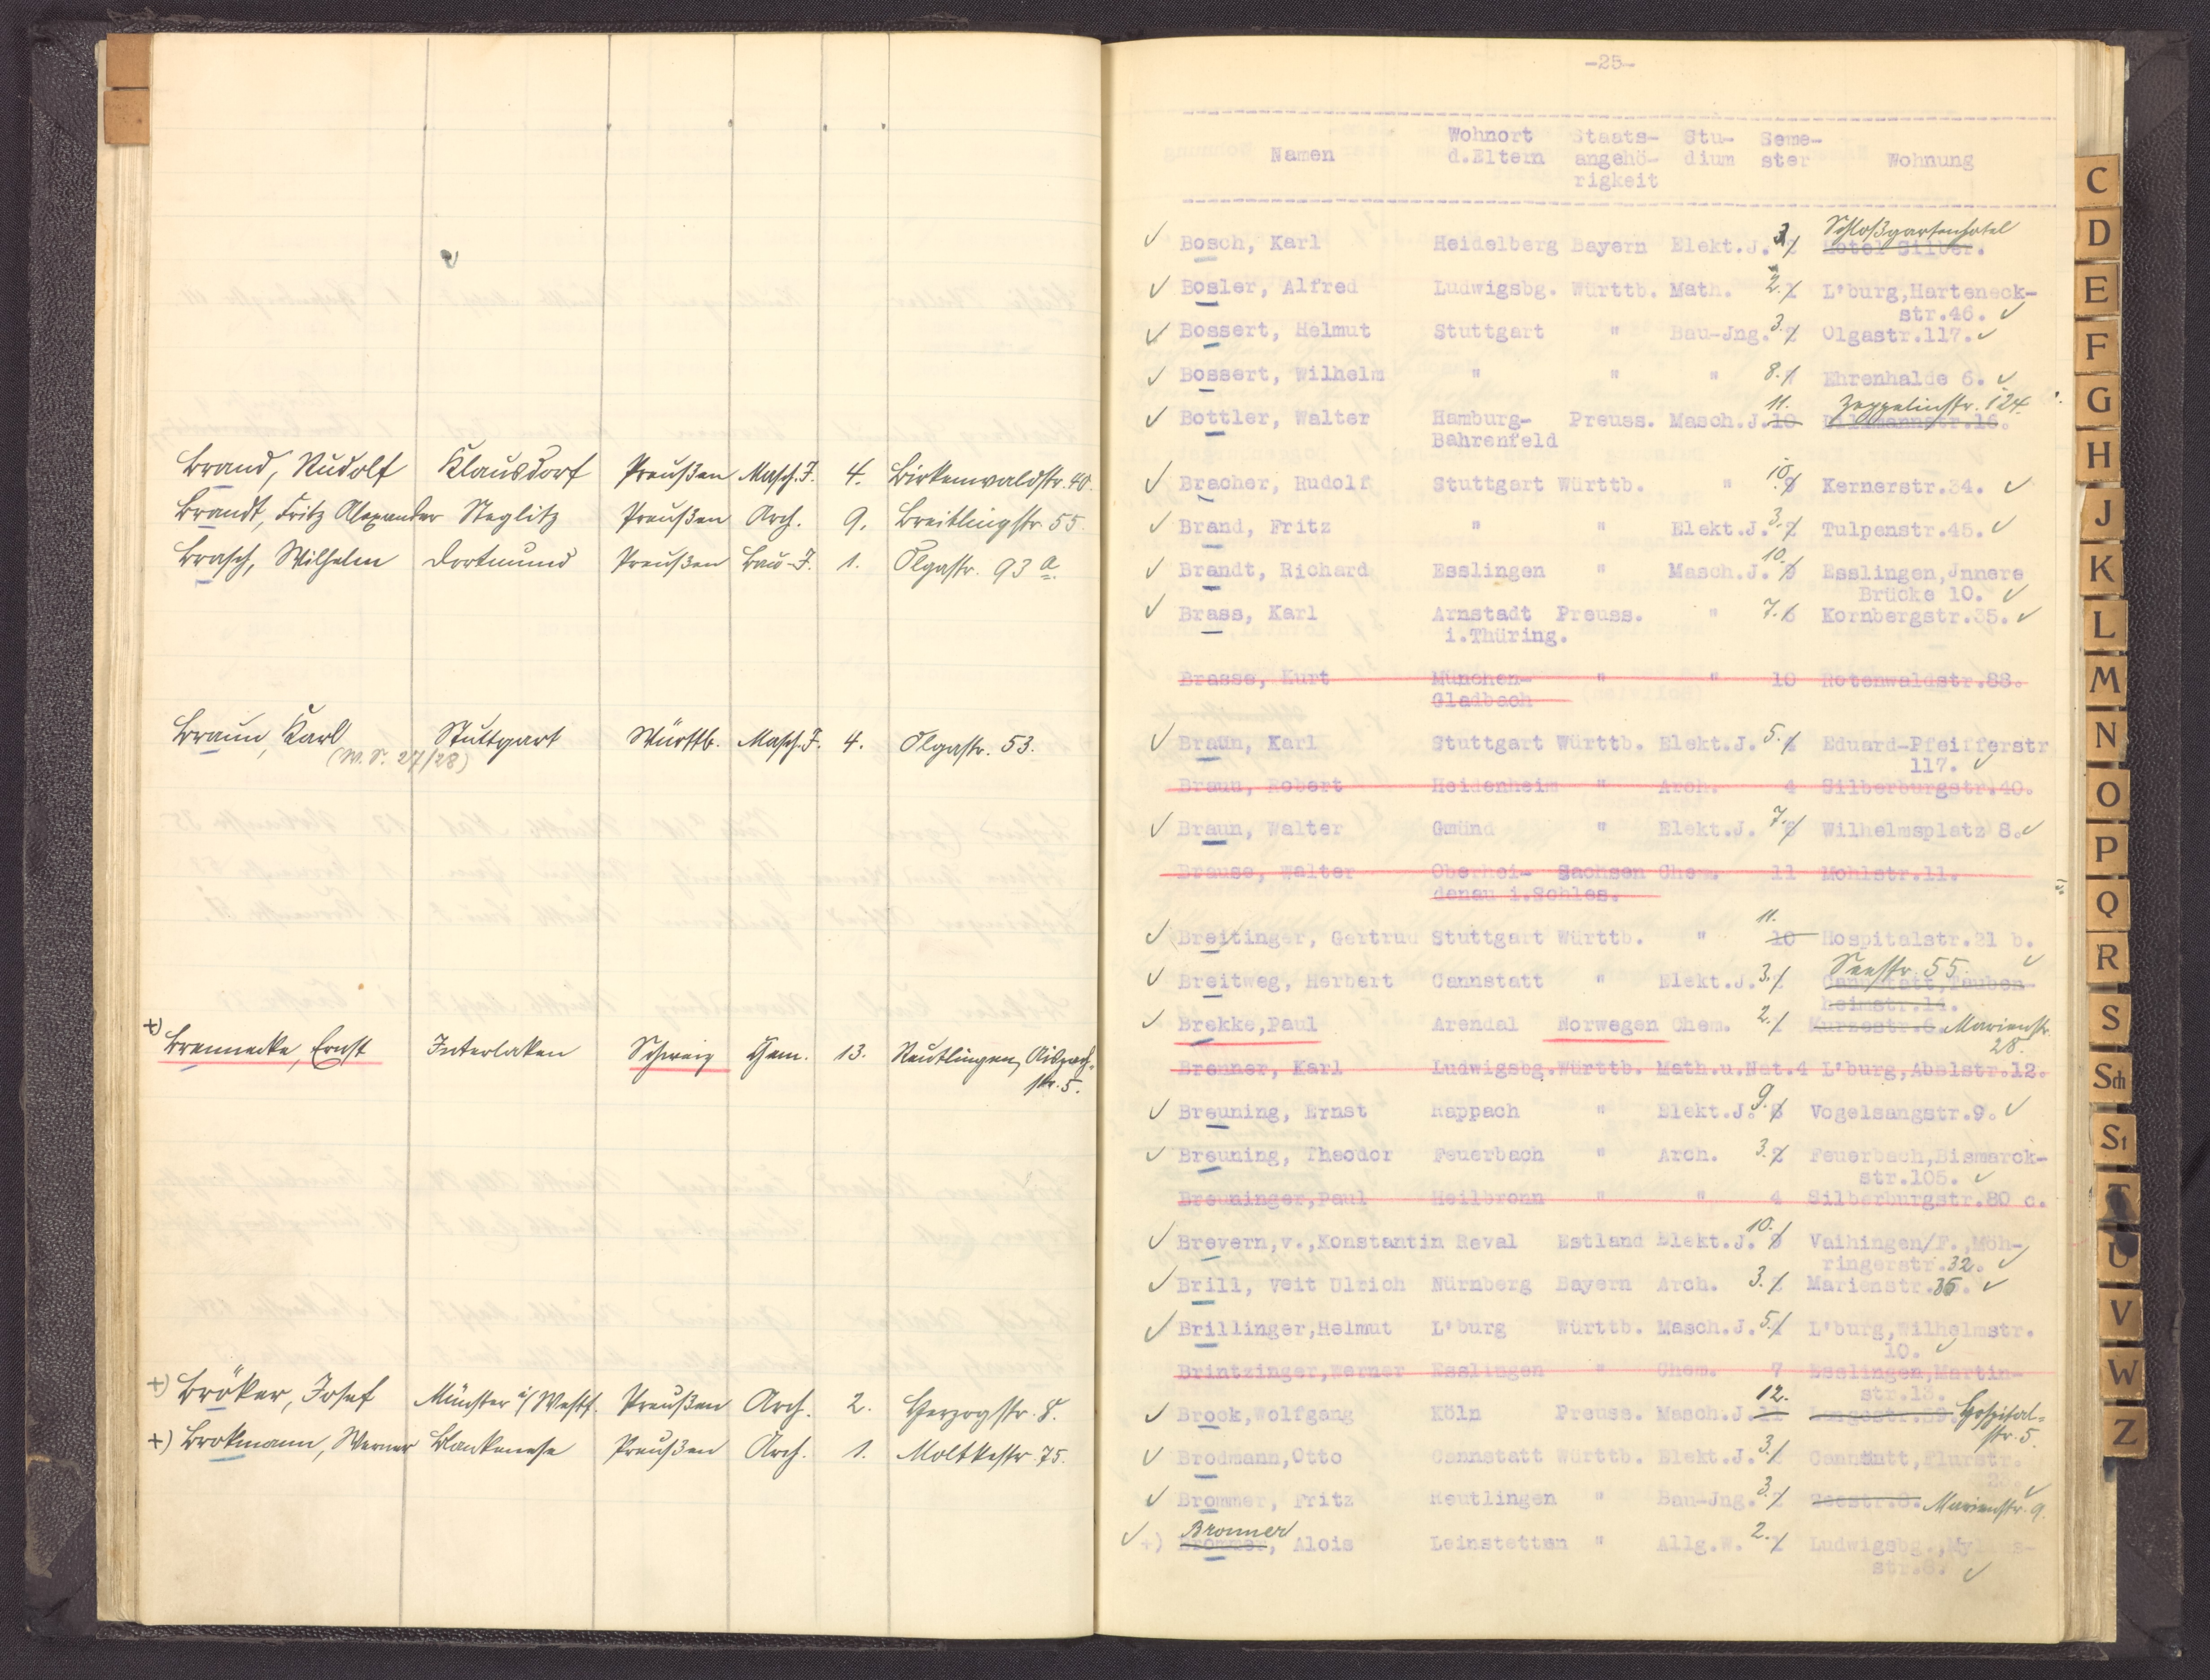 Brand, Rudolf Klausdorf Preußen Masch. I. 4. Birkenwaldstr. 40.
Brandt, Fritz Alexander Steglitz Preußen Arch. 9. Breitlingstr. 55.
Brasch, Wilhelm Dortmund Preußen Bau-I. 1. Olgastr. 93 a.
Braun, Karl Stuttgart Württb. Masch. I. 4. Olgastr. 53.
(W. S. 27/28)
+) Brennecke, Ernst Interlaken Schweiz Chem. 13. Reutlingen,
str. 5.
+) Bröker, Josef Münster i/Westf. Preußen Arch. 2. Herzogstr. 8.
+) Brokmann, Werner Blankenese Preußen Arch. 1. Moltkestr. 75.
-25-
Wohnort Staats- Stu- Seme-
Namen d.Eltern angehö- dium ster Wohnung
rigkeit
Schloßgartenhotel
Bosch, Karl Heidelberg Bayern Elekt.J. 3. Hotel Silber.
Bosler, Alfred Ludwigsbg. Württb. Math. 2. L'burg,Harteneck-
str.46.
Bossert, Helmut Stuttgart " Bau-Jng. 3. Olgastr.117.
Bossert, Wilhelm " " " 8. Ehrenhalde 6.
11. Zeppelinstr. 124.
Bottler, Walter Hamburg- Preuss. Masch.J. 10 Dillmannstr.16.
Bahrenfeld
Bracher, Rudolf Stuttgart Württb. " 10. Kernerstr.34.
Brand, Fritz " " Elekt.J. 3. Tulpenstr.45.
Brandt, Richard Esslingen " Masch.J. 10. Esslingen,Jnnere
Brücke 10.
Brass, Karl Arnstadt Preuss. " 7. 6 Kornbergstr.35.
i.Thüring.
Brasse, Kurt München- " " 10 Rotenwaldstr.88.
Gladbach
Braun, Karl Stuttgart Württb. Elekt.J. 5. Eduard-Pfeifferstr
117.
Braun, Robert Heidenheim " Arch. 4 Silberburgstr.40.
Braun, Walter Gmünd " Elekt.J. 7. Wilhelmsplatz 8.
Brause, Walter Oberhei- Sachsen Chem. 11 Mohlstr.11.
denau i.Schles.
11.
Breitinger, Gertrud Stuttgart Württb. " 10 Hospitalstr.21 b.
Seestr. 55.
Breitweg, Herbert Cannstatt " Elekt.J. 3. Cannstatt,Tauben-
heimstr.14.
Brekke,Paul Arendal Norwegen Chem. 2. Kurzestr.6. Marienstr.
28.
Brenner, Karl Ludwigsbg.Württb. Math.u.Nat.4 L'burg,Abelstr.12.
Breuning, Ernst Rappach " Elekt.J. 9. Vogelsangstr.9.
Breuning, Theodor Feuerbach " Arch. 3. Feuerbach,Bismarck-
str.105.
Breuninger,Paul Heilbronn " " 4 Silberburgstr.80 c.
Brevern,v.,Konstantin Reval Estland Elekt.J. 10. Vaihingen/F.,Möh-
ringerstr.32.
Brill, Veit Ulrich Nürnberg Bayern Arch. 3. Marienstr.36.
Brillinger,Helmut L'burg Württb. Masch.J. 5. L'burg,Wilhelmstr.
10.
Brintzinger,Werner Esslingen " Chem. 7 Esslingen,Martin-
str.13.
12.
Brock,Wolfgang Köln Preuss. Masch.J. 11 Langestr.59. Hospital-
str. 5.
Brodmann,Otto Cannstatt Württb. Elekt.J. 3. Cannstatt,Flurstr.
23.
Brommer, Fritz Reutlingen " Bau-Jng. 3. Seestr.8. Marienstr. 9.
Bronner
+) Brommer, Alois Leinstetten " Allg.W. 2. Ludwigsbg.,Mylius-
str.6.
C
D
E
F
G
H
J
K
L
M
N
O
P
Q
R
S
Sch
St
T
U
V
W
Z